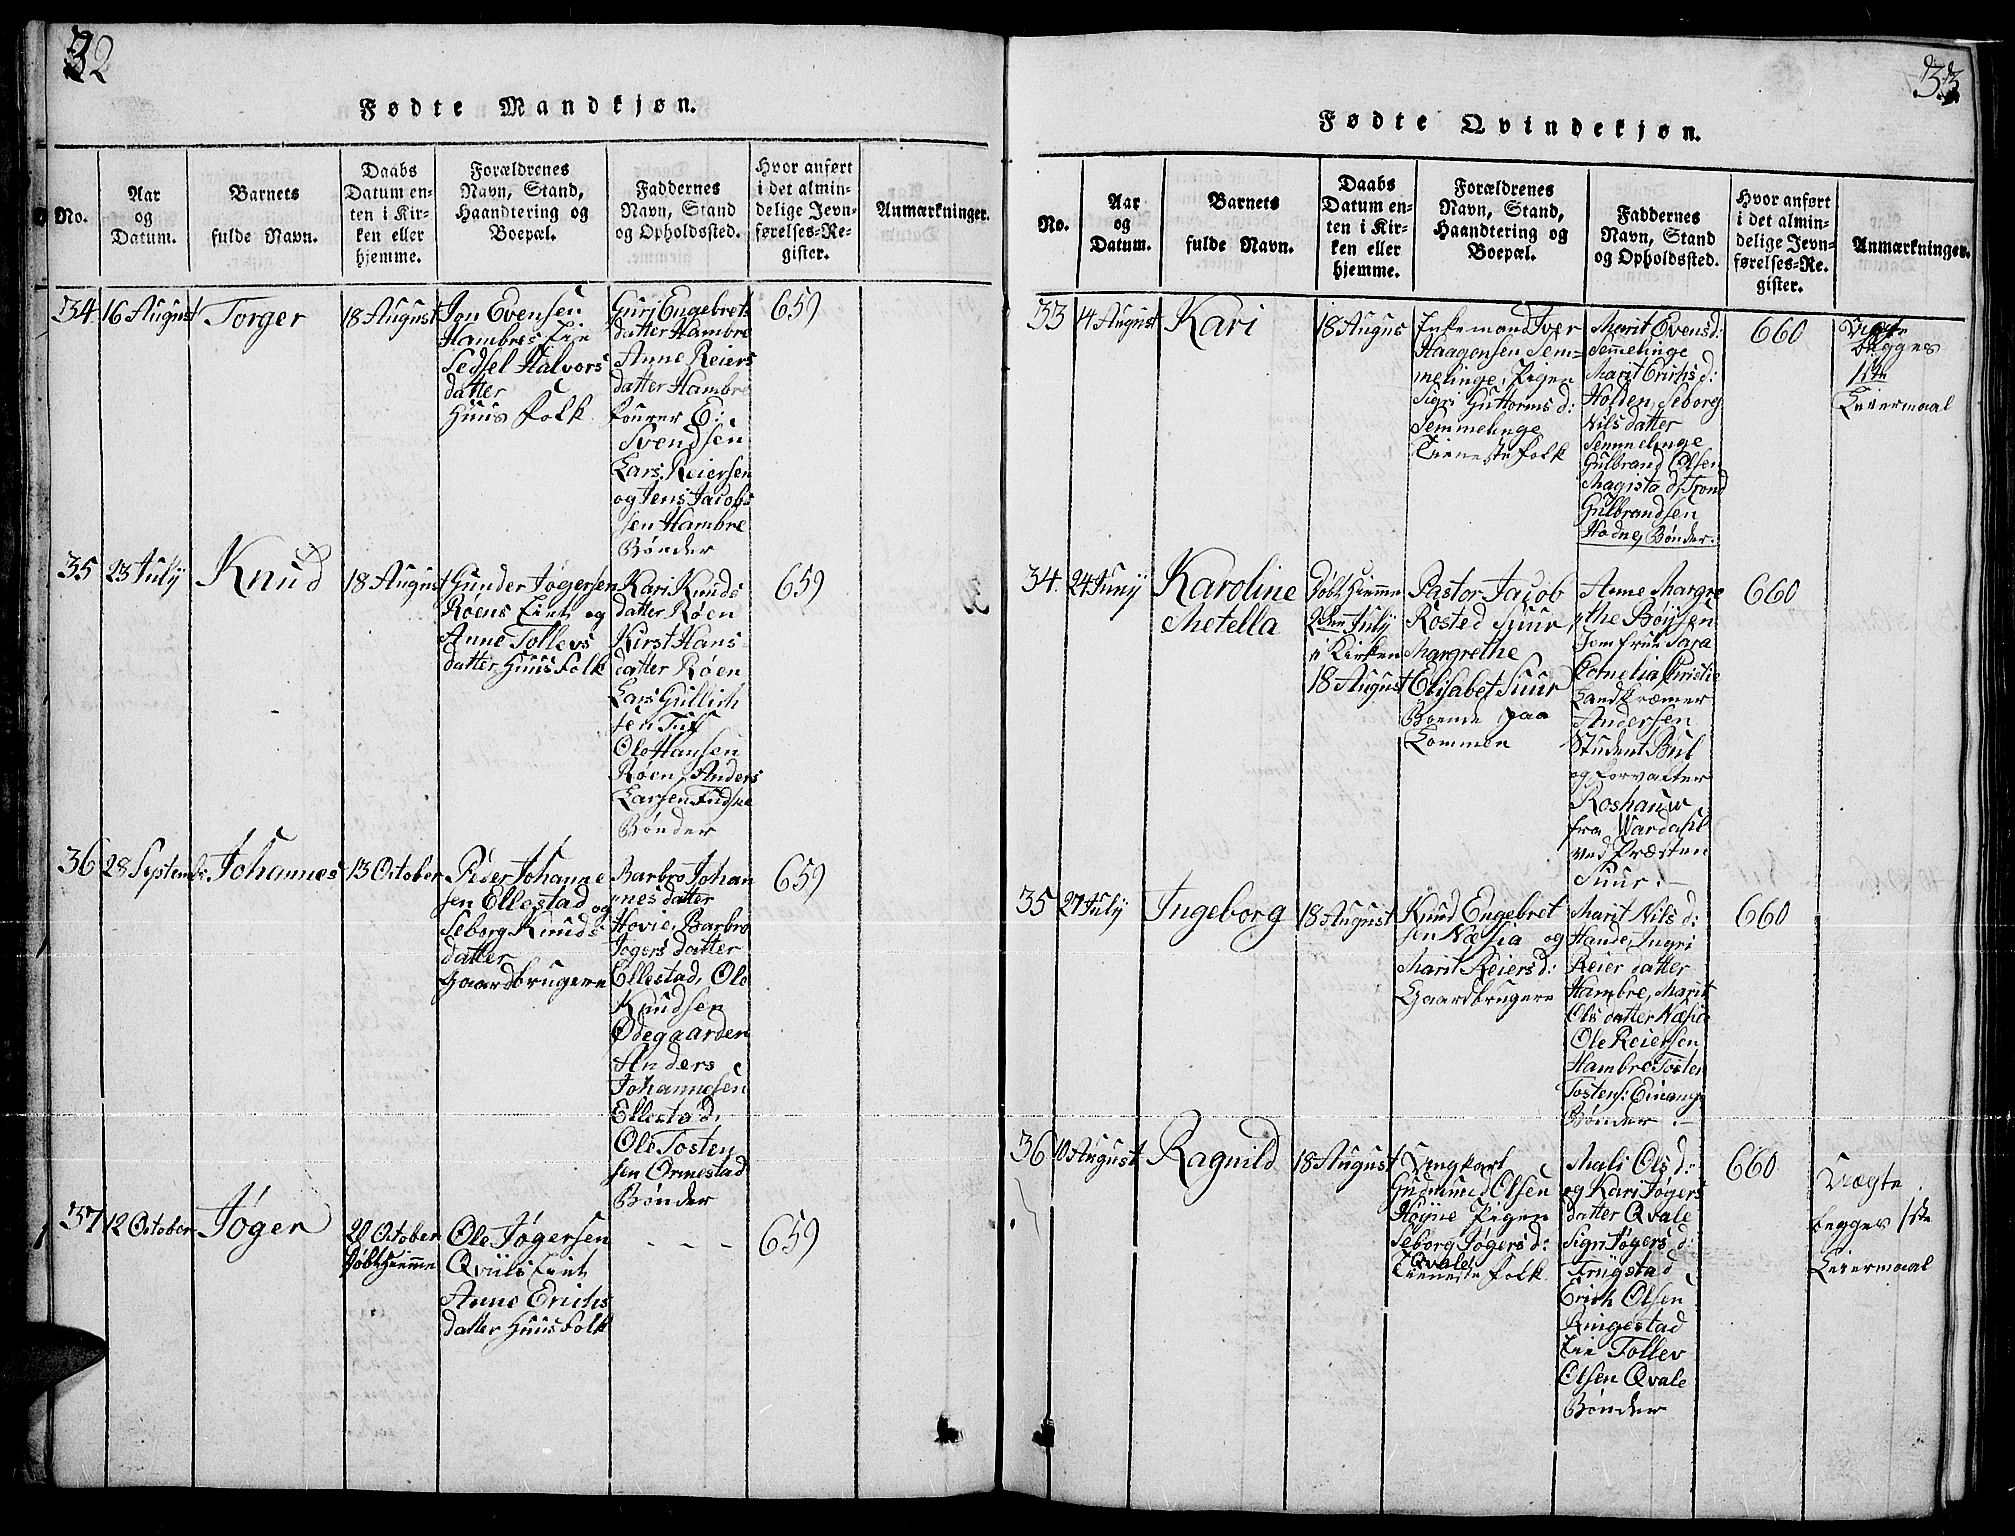 32
Fødte Mandkjøn.
No.
Aar
og
Datum.
Barnets
fulde Navn.
Daabs
Datum en-
ten i Kir-
ken eller
hjemme.
Forældrenes
Navn, Stand,
Haandtering og
Boepæl.
Faddernes
Navn, Stand
og Opholdssted.
Hvor anført
i det almin-
delige Jevn-
førelses-Re-
gister.
Anmærkninger.
34
16 August
Torger
18 August
Jon Evensen
Hambres Eie
Sedsel Halvors
datter
Huus folk
Guri Engebrets
datter Hambre
Anne Reiers
datter Hambre
fourer E:
Svendsen
Lars Reiersen
og Jens Jacobs
sen Hambre
Bønder
659
35
23 July
Knud
18 August
Gunder Jøgersen
Røens Eiet og
Anne Tollevs
datter Huusfolk
Kari Knuds
datter Røen
Kirst Hans-
datter Røen
Lars Gullich
sen Tuf
Ole Hansen
Røen, Anders
Larsen Fudsne
Bønder
659
36
28 Septemb:
Johannes
13 October
Peder Johanne
sen Ellestad og
Seborg Knuds
datter
Gaardbrugere
Barbro Johan
nes datter
Hovie, Barbro
Jøgers datter
Ellestad, Ole
Knudsen
Ødegaarden
Anders
Johannesen
Ellestad,
Ole Tosten
sen Ormestad
Bønder
659
37
12 October
Jøger
20 October
døbt Hiemme
Ole Jøgersen
Qviils Eiet
Anne Erichs
datter Huusfolk
- - -
659
33
Fødte Qvindekjøn.
No.
Aar
og
Datum.
Barnets
fulde Navn.
Daabs
Datum en-
ten i Kir-
ken eller
hjemme.
Forældrenes
Navn, Stand,
Haandtering og
Boepæl.
Faddernes
Navn, Stand
og Opholdssted.
Hvor anført
i det almin-
delige Jevn-
førelses-Re-
gister.
Anmærkninger.
33
14 August
Kari
18 Augus
Enkemand Iver
Haagensen Sem=
melinge, Pigen
Sigri Guttorms d:
Semmelinge
Tieneste folk
Marit Evens d:
Semmelinge
Marit Erichs d:
Holden, Seborg
Nils datter
Semmelinge
Gulbrand Olsen
Magista d, Trond
Gulbrandsen
Hodne, Bønder.
660
Uægte
begges
1ste
Leiermaal
34
24 Juny
Karoline
Metella
Døbt Hiemme
2den July
i Kirken
18 August
Pastor Jacob
Rosted Suur,
Margrethe
Elisabet Suur
Boende paa
Lommen
Anne Margre
the Bøysen
Jomfrue Sara
Cornelia Christie
Landkræmer
Andersen
Student Bul
og Forvalter
Roshauw
fra Vardahl
ved Præsten
Suur.
660
35
27 July
Ingeborg
18 August
Knud Engebret
sen Næsia og
Marit Reiers d:
Gaardbrugere
Marit Nils d:
Hande, Ingri
Reier datter
Hambre, Marit
Ols datter Næsia
Ole Reiersen
Hambre Tosten
Tostens: Einang
Bønder.
660
36
10 August
Ragnild
18 August
Ungkarl
Gudmund Olsen
Høyne Pigen
Seborg Jøgers d:
Qvale
Tieneste folk
Mali Ols d:
og Kari Jøgers
datter Qvale
Sigri Jøgers d:
Frügstad
Erich Olsen
Ringestad
Eie Tollev
Olsen Qvale
Bønder
660
Uægte
begges 1ste
Leiermaal